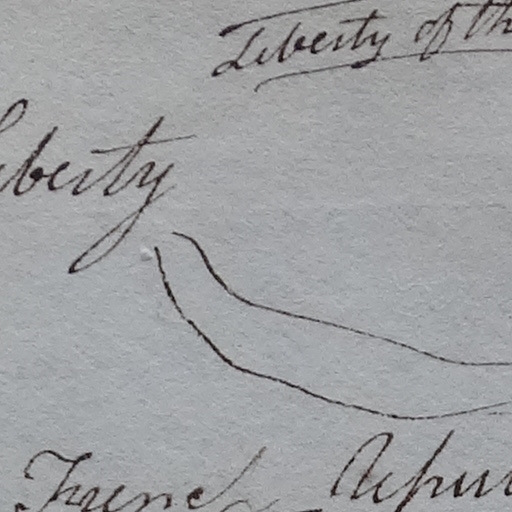 Liberty of th
iberty
French Repu